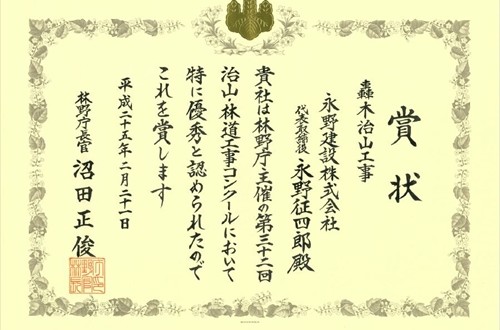 賞状
轟木治山工事
永野建設株式会社
代表取締役 永野征四郎殿
貴社は林野庁主催の第三十二回
治山・林道工事コンクールにおいて
特に優秀と認められたので
これを賞します
平成二十五年二月二十一日
林野庁長官 沼田正俊